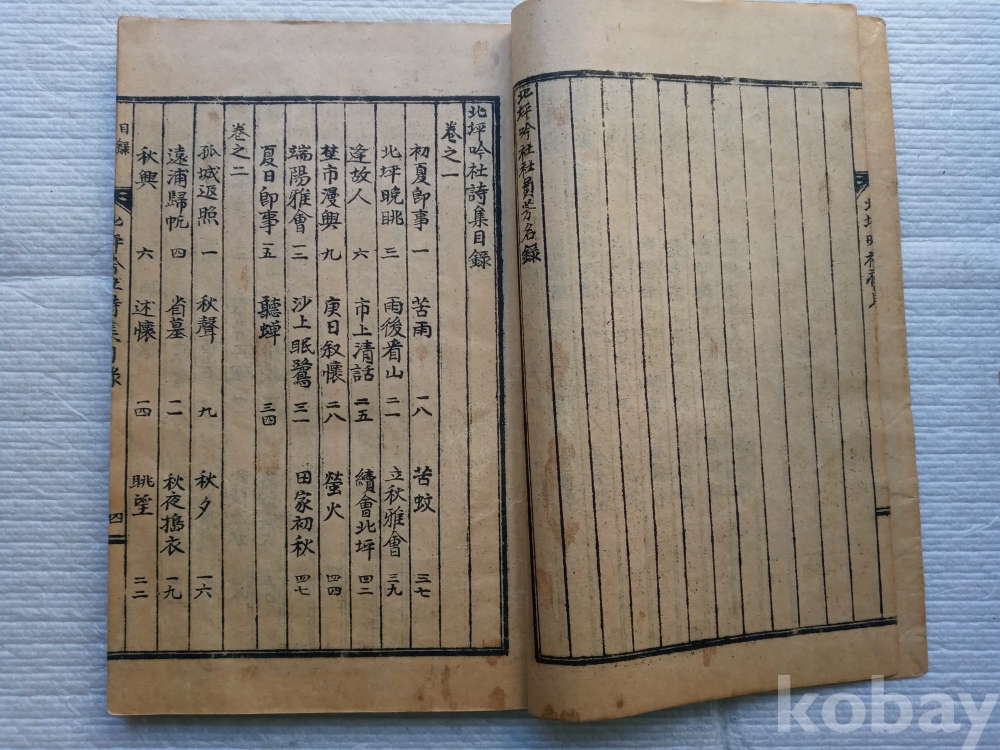 北坪吟社社員芳名錄
北坪吟社詩集目錄
卷之一
初夏即事 一 苦雨 一八 苦蚊 三七
北坪晚眺 三 雨後看山 二一 立秋雅會 三九
逢故人 六 市上清話 二五 續會北坪 四二
埜市漫興 九 庚日叙懷 二八 螢火 四四
端陽雅會 一二 沙上眠鷺 三一 田家初秋 四七
夏日即事 一五 聽蟬 三四
卷之二
孤城返照 一 秋聲 九 秋夕 一六
遠浦歸帆 四 省墓 一一 秋夜搗衣 一九
秋興 六 述懷 一四 眺望 二二
目錄 北坪吟社詩集目錄 四
kobay